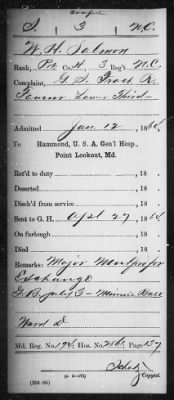 S. 3 N.C.
W. H. Salmon
Rank, Pt. Co. H, 3 Reg't N.C.
Complaint, G. S. Fract. R.
Femur Lower Third
Admitted Jan. 12, 186
To
Hammond, U. S. A. Gen'l Hosp.,
Point Lookout, Md.
Ret'd to duty , 18 .
Deserted , 18 .
Disch'd from service , 18 .
Sent to G. H. Apl 27, 186
On furlough , 18 .
Died , 18 .
Remarks: Major
Exchange
July 3 - Minnie Ball
Ward D.
Md. Reg. No. Hos. No. Page 157
Copyist.